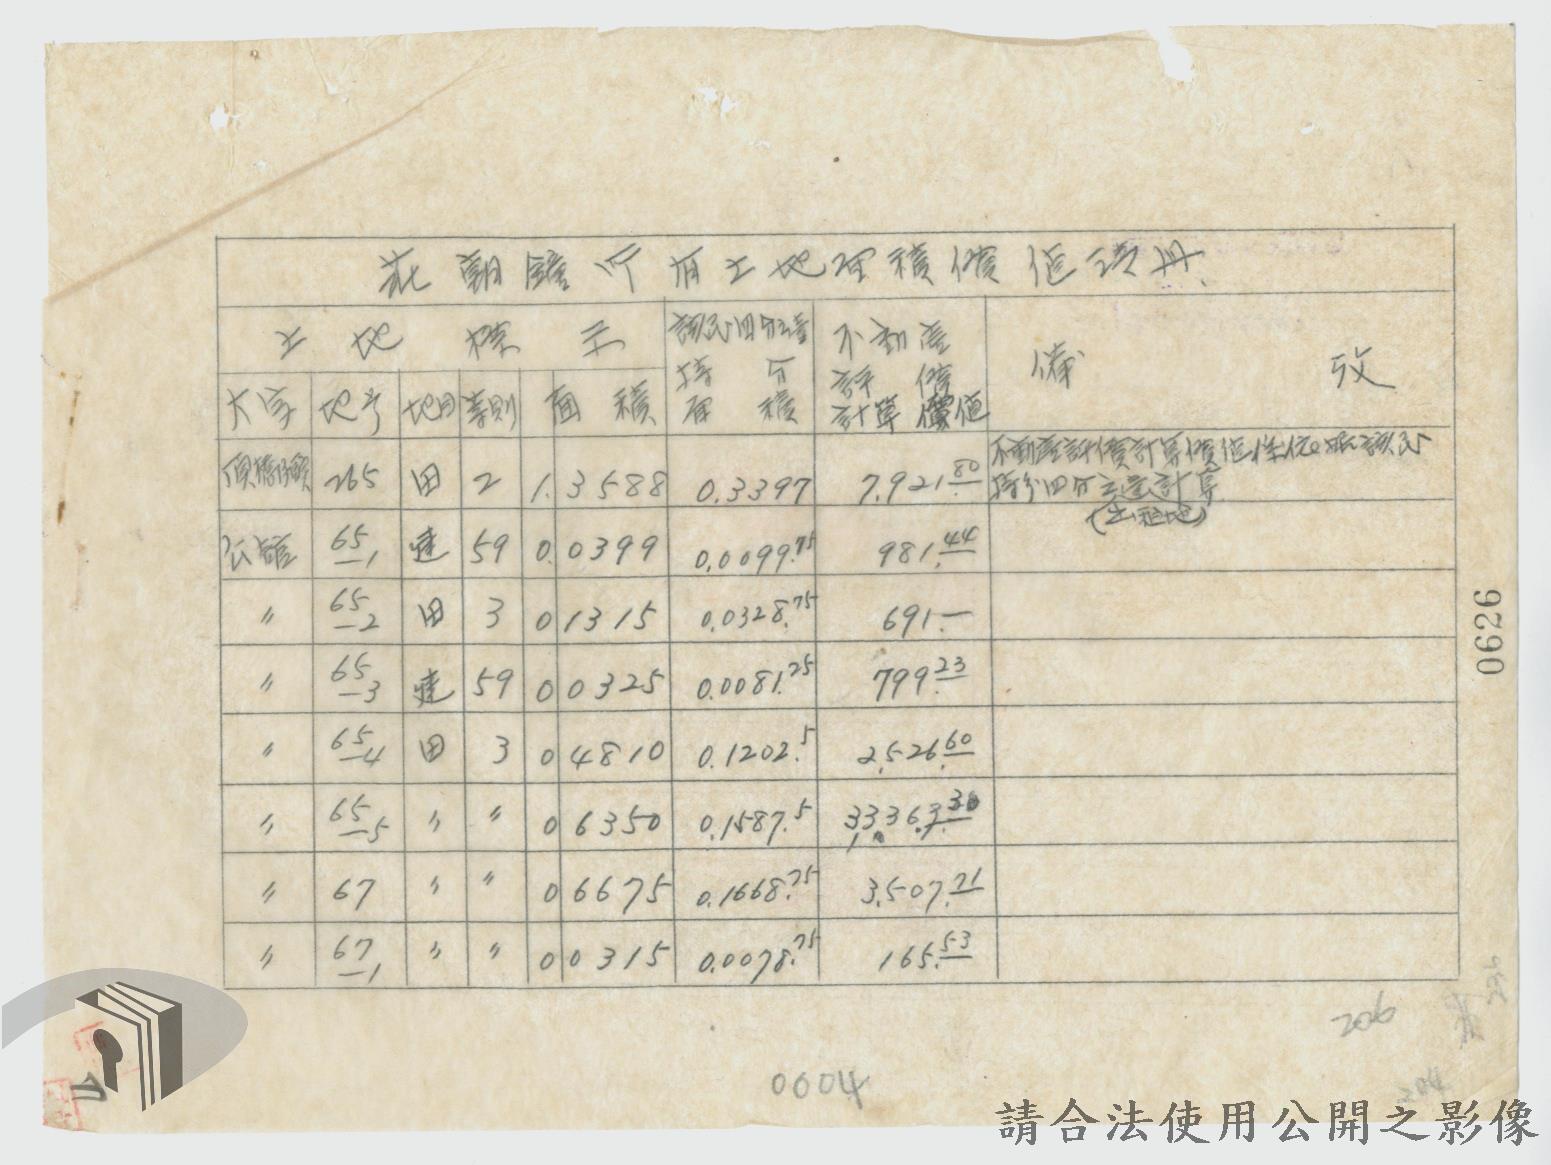 莊朝鐘所有土地面積價值清冊
土地標示 該民四分之壹持分面積 不動產評價計算價值 備攷
大字 地号 地目 等則 面積
265 田 2 1.3588 0.3397 7,921.80 不動產評價計算價值係依照該民持分四分之壹計算
(出租地)
公館 65-1 建 59 0.0399 0.0099.75 981.44
〃 65-2 田 3 0 1315 0.0328.75 691.—
〃 65-3 建 59 0 0325 0.0081.25 799.23
〃 65-4 田 3 0 4810 0.1202.5 2,526.60
〃 65-5 〃 〃 0 6350 0.1587.5
〃 67 〃 〃 0 6675 0.1668.75 3,507.71
〃 67-1 〃 〃 0 0315 0.0078.75 165.53
0626
206
204
0604
請合法使用公開之影像